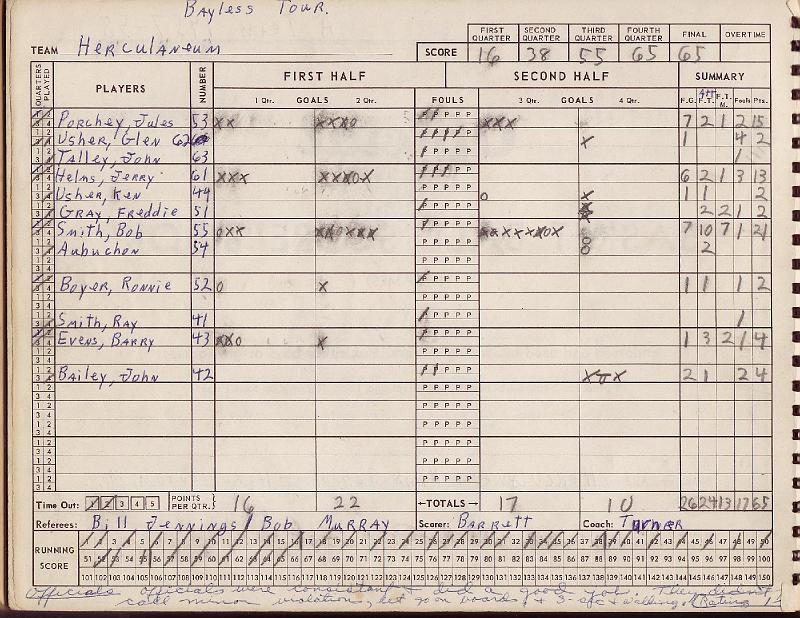 Bayless Tour.
FIRST QUARTER SECOND QUARTER THIRD QUARTER FOURTH QUARTER FINAL OVERTIME
TEAM Herculaneum SCORE 16 38 55 65 65
QUARTERS PLAYED PLAYERS NUMBER FIRST HALF SECOND HALF SUMMARY
1 Qtr. GOALS 2 Qtr. FOULS 3 Qtr. GOALS 4 Qtr. F.G. Att F.T. F.T. M. Fouls Pts.
Porchey, Jules 53 xx xxxo PPPPP xxx 7 2 1 2 15
Usher, Glen 62 PPPPP x 1 4 2
Talley, John 63 PPPPP 1
Helms, Jerry 61 xxx xxxox PPPPP 6 2 1 3 13
Usher, Ken 44 PPPPP o x 1 1 2
Gray, Freddie 51 PPPPP 2 2 1 2
Smith, Bob 55 oxx PPPPP 7 10 7 1 21
Aubuchon 54 PPPPP o o 2
Boyer, Ronnie 52 o x PPPPP 1 1 1 2
Smith, Ray 41 PPPPP 1
Evens, Barry 43 xxo x PPPPP 1 3 2 1 4
Bailey, John 42 PPPPP xox 2 1 2 4
Time Out: 1 2 3 4 5 POINTS PER QTR. 16 22 ←TOTALS→ 17 10 26 24 13 17 65
Referees: Bill Jennings / Bob Murray Scorer: Barrett Coach: Turner
RUNNING SCORE
1 2 3 4 5 6 7 8 9 10 11 12 13 14 15 16 17 18 19 20 21 22 23 24 25 26 27 28 29 30 31 32 33 34 35 36 37 38 39 40 41 42 43 44 45 46 47 48 49 50
51 52 53 54 55 56 57 58 59 60 61 62 63 64 65 66 67 68 69 70 71 72 73 74 75 76 77 78 79 80 81 82 83 84 85 86 87 88 89 90 91 92 93 94 95 96 97 98 99 100
101 102 103 104 105 106 107 108 109 110 111 112 113 114 115 116 117 118 119 120 121 122 123 124 125 126 127 128 129 130 131 132 133 134 135 136 137 138 139 140 141 142 143 144 145 146 147 148 149 150
Officials officials were consistant & did a good job. They didn't
call minor violations, let go on boards, & 3 sec & walking. (Rating 1